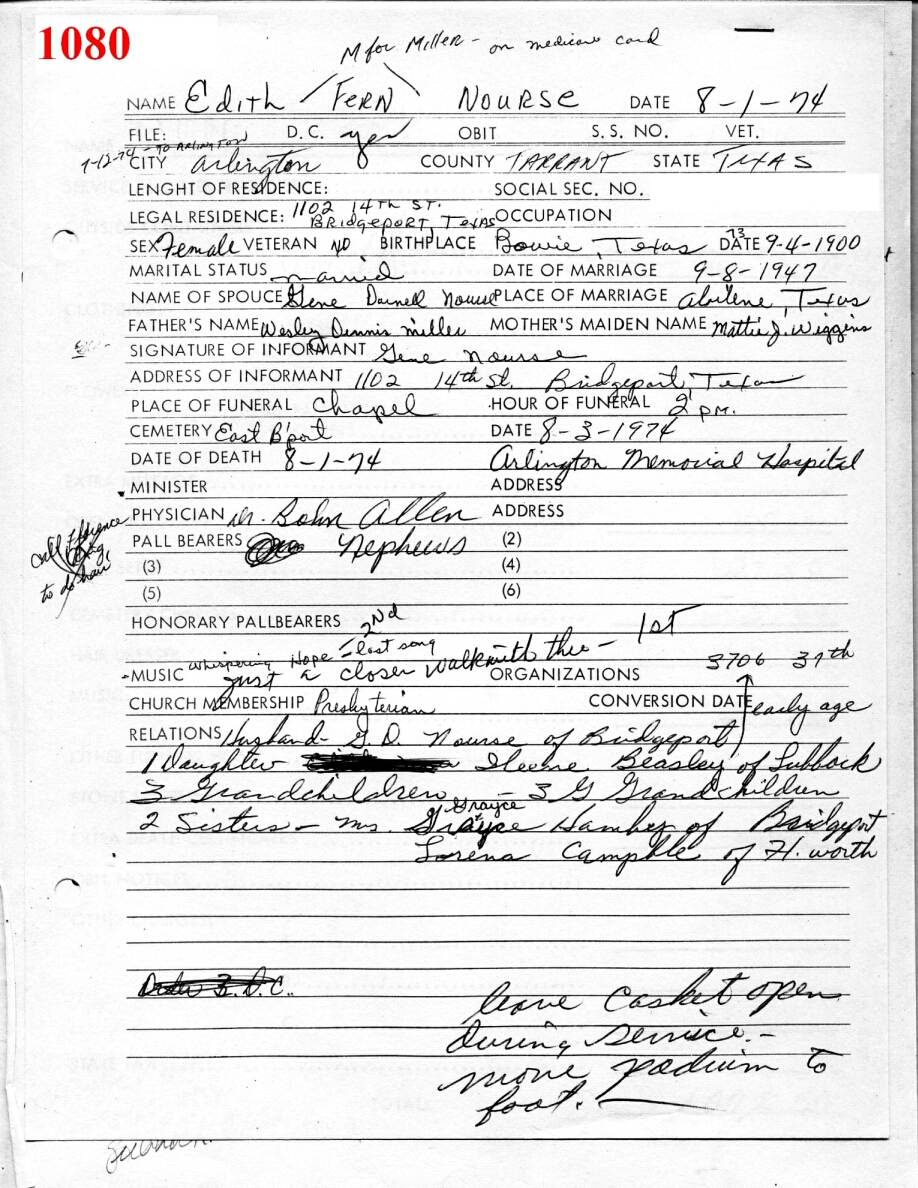 1080
M for Miller - on medicare card
NAME Edith Fern Nourse DATE 8-1-74
FILE: D.C. yes OBIT S. S. NO. VET.
7-12-74 - TO ARLINGTON
CITY Arlington COUNTY TARRANT STATE TEXAS
LENGHT OF RESIDENCE: SOCIAL SEC. NO.
LEGAL RESIDENCE: 1102 14TH ST. Bridgeport, Texas OCCUPATION
SEX Female VETERAN NO BIRTHPLACE Bowie, Texas DATE 9-4-1900
73
MARITAL STATUS married DATE OF MARRIAGE 9-8-1947
NAME OF SPOUCE Gene Darnell Nourse PLACE OF MARRIAGE Abilene, Texas
FATHER'S NAME Wesley Dennis Miller MOTHER'S MAIDEN NAME Mattie J. Wiggins
SIGNATURE OF INFORMANT Gene Nourse
ADDRESS OF INFORMANT 1102 14th St. Bridgeport, Texas
PLACE OF FUNERAL Chapel HOUR OF FUNERAL 2 P.M.
CEMETERY East B'port DATE 8-3-1974
DATE OF DEATH 8-1-74 Arlington Memorial Hospital
MINISTER ADDRESS
PHYSICIAN Dr. Bohn Allen ADDRESS
Call Florence
to do hair
PALL BEARERS Nephews (2)
(3) (4)
(5) (6)
HONORARY PALLBEARERS
2nd 1st
MUSIC Whispering Hope - last song just a closer walk with thee - ORGANIZATIONS 3706 37th
CHURCH MEMBERSHIP Presbyterian CONVERSION DATE early age
RELATIONS Husband - G. D. Nourse of Bridgeport
1 Daughter Ileene Beasley of Lubbock
3 Grandchildren - 3 G Grandchildren
2 Sisters - Mrs. Grayce Hamby of Bridgeport
Grayce
Lorena Campble of Ft. Worth
leave casket open
during service. -
move podium to
foot.